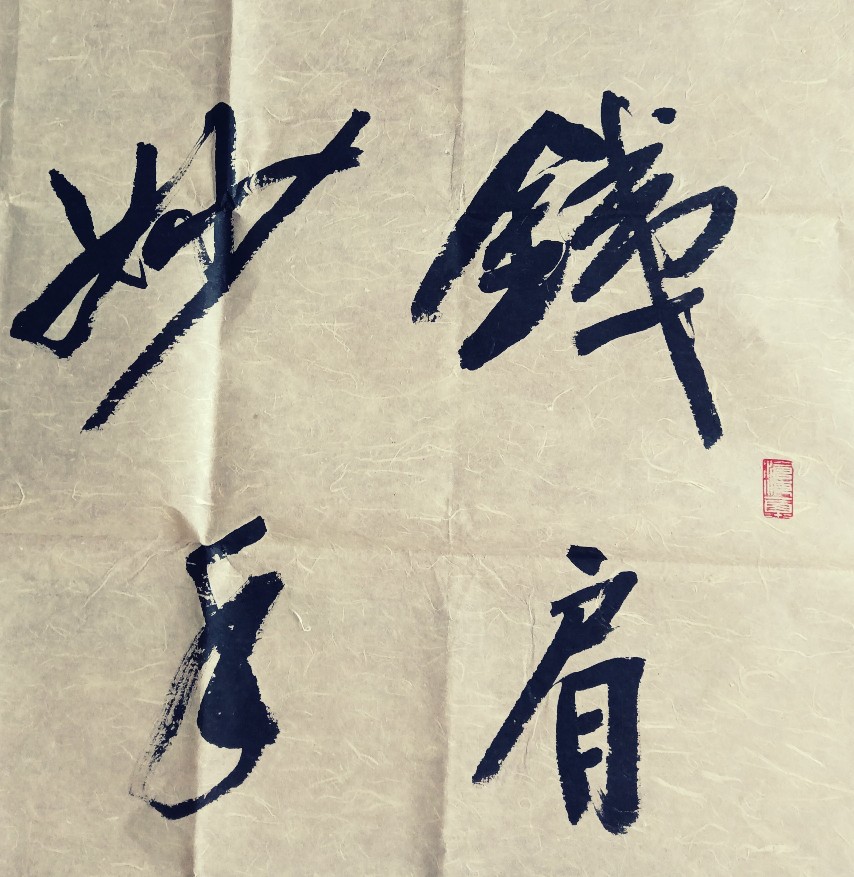 鐵肩
妙手